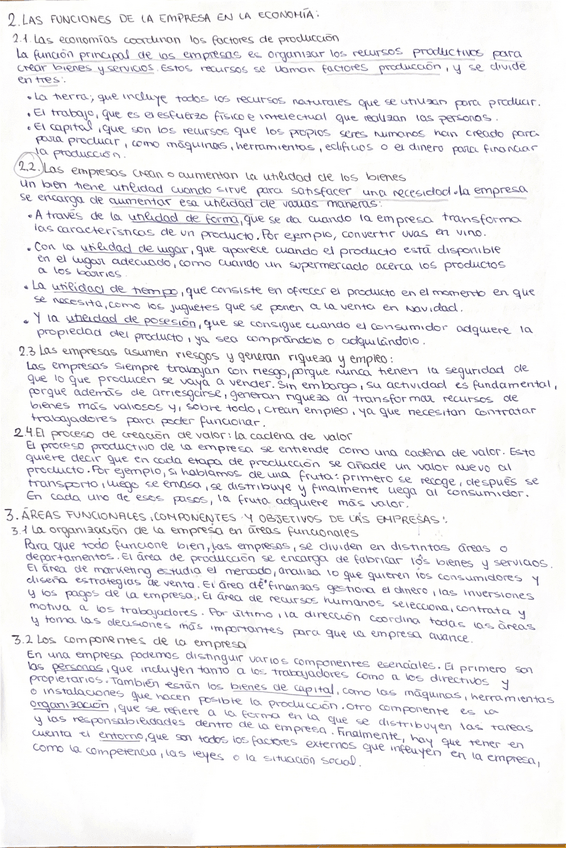 2. LAS FUNCIONES DE LA EMPRESA EN LA ECONOMÍA:
2.1 Las economías coordinan los factores de producción
La función principal de las empresas es organizar los recursos productivos para
crear bienes y servicios. Estos recursos se llaman factores producción, y se divide
en tres:
• La tierra, que incluye todos los recursos naturales que se utilizan para producir.
• El trabajo, que es el esfuerzo físico e intelectual que realizan las personas.
• El capital, que son los recursos que los propios seres humanos han creado para
para producir, como máquinas, herramientas, edificios o el dinero para financiar
la producción.
2.2. Las empresas crean o aumentan la utilidad de los bienes
Un bien tiene utilidad cuando sirve para satisfacer una necesidad. La empresa
se encarga de aumentar esa utilidad de varias maneras:
• A través de la utilidad de forma, que se da cuando la empresa transforma
las características de un producto. Por ejemplo, convertir uvas en vino.
• Con la utilidad de lugar, que aparece cuando el producto está disponible
en el lugar adecuado, como cuando un supermercado acerca los productos
a los barrios.
• La utilidad de tiempo, que consiste en ofrecer el producto en el momento en que
se necesita, como los juguetes que se ponen a la venta en Navidad.
• Y la utilidad de posesión, que se consigue cuando el consumidor adquiere la
propiedad del producto, ya sea comprándolo o adquilándolo.
2.3 Las empresas asumen riesgos y generan riqueza y empleo:
Las empresas siempre trabajan con riesgo, porque nunca tienen la seguridad de
que lo que producen se vaya a vender. Sin embargo, su actividad es fundamental,
porque además de arriesgarse, generan riqueza al transformar recursos de
bienes más valiosos y, sobre todo, crean empleo, ya que necesitan contratar
trabajadores para poder funcionar.
2.4 El proceso de creación de valor: la cadena de valor
El proceso productivo de la empresa se entiende como una cadena de valor. Esto
quiere decir que en cada etapa de producción se añade un valor nuevo al
producto. Por ejemplo, si hablamos de una fruta: primero se recoge, después se
transporta, luego se envasa, se distribuye y finalmente llega al consumidor.
En cada uno de esos pasos, la fruta adquiere más valor.
3. ÁREAS FUNCIONALES, COMPONENTES Y OBJETIVOS DE LAS EMPRESAS:
3.1 La organización de la empresa en áreas funcionales
Para que todo funcione bien, las empresas, se dividen en distintas áreas o
departamentos. El área de producción se encarga de fabricar los bienes y servicios.
El área de marketing estudia el mercado, analiza lo que quieren los consumidores y
diseña estrategias de venta. El área de finanzas gestiona el dinero, las inversiones
y los pagos de la empresa. El área de recursos humanos selecciona, contrata y
motiva a los trabajadores. Por último, la dirección coordina todas las áreas
y toma las decisiones más importantes para que la empresa avance.
3.2 Los componentes de la empresa
En una empresa podemos distinguir varios componentes esenciales. El primero son
las personas, que incluyen tanto a los trabajadores como a los directivos y
propietarios. También están los bienes de capital, como las máquinas, herramientas
o instalaciones que hacen posible la producción. Otro componente es la
organización, que se refiere a la forma en la que se distribuyen las tareas
y las responsabilidades dentro de la empresa. Finalmente, hay que tener en
cuenta el entorno, que son todos los factores externos que influyen en la empresa,
como la competencia, las leyes o la situación social.